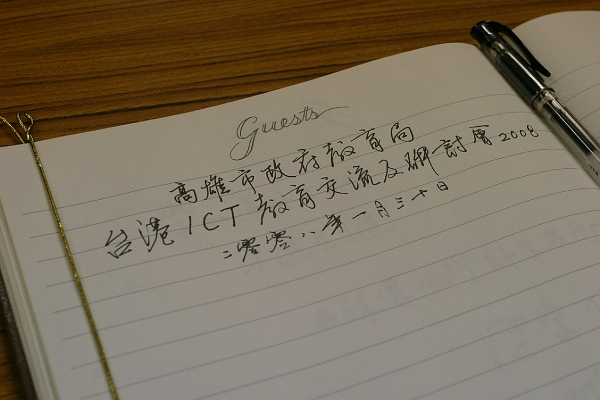 Guests
高雄市政府教育局
台港ICT教育交流及研討會2008
二零零八年一月三十日